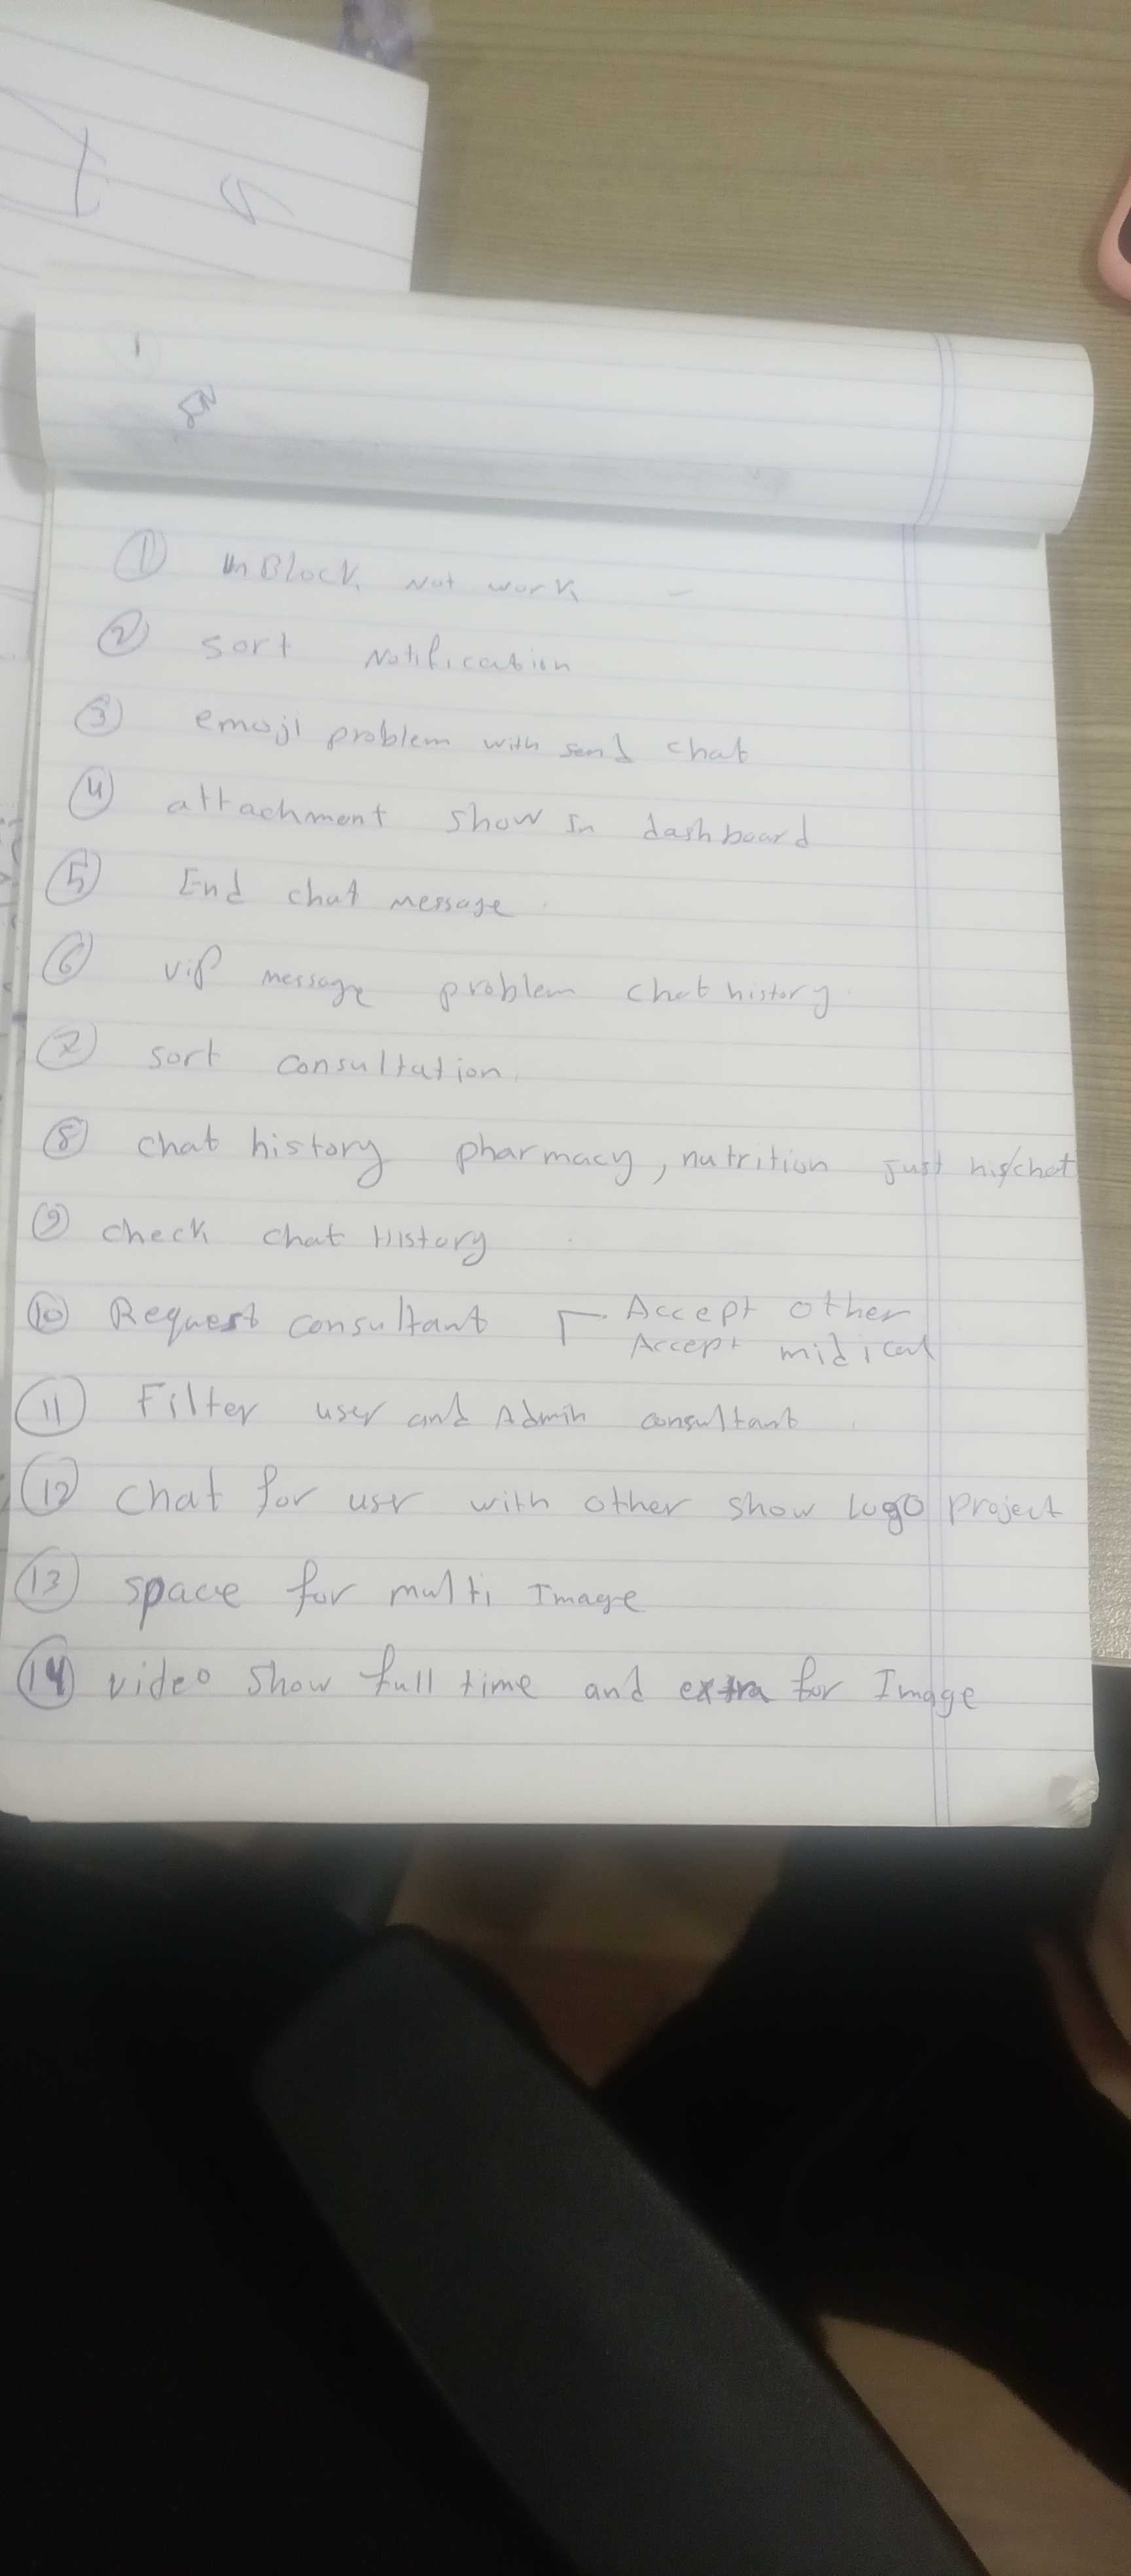 ① unBlock Not work -
② sort Notification
③ emoji problem with send chat
④ attachment show In dashboard
⑤ End chat message
⑥ vip message problem chat history
⑦ sort consultation
⑧ chat history pharmacy, nutrition just his/chat
⑨ check chat History
⑩ Request consultant Accept other
Accept midical
⑪ Filter user and Admin consultant
⑫ chat for user with other show logo project
⑬ space for multi Image
⑭ video show full time and extra for Image